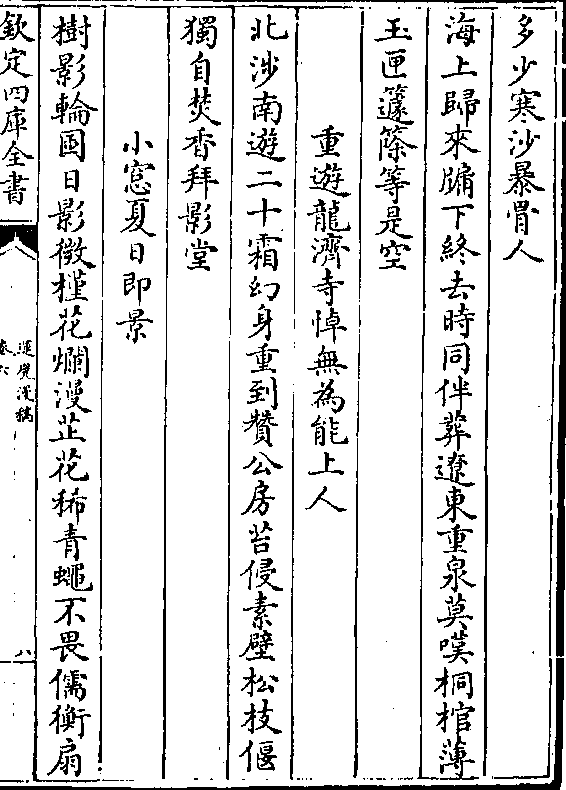 多少寒沙暴骨人
海上歸來牖下終去時同伴葬遼東重泉莫嘆桐棺薄
玉匣籧篨等是空
重遊龍濟寺悼無為能上人
北涉南遊二十霜幻身重到賛公房苔侵素壁松枝偃
獨自焚香拜影堂
小窓夏日即景
樹影輪囷日影微槿花爛漫芷花稀青蠅不畏儒衡扇
欽定四庫全書
運甓漫稿
卷六
八